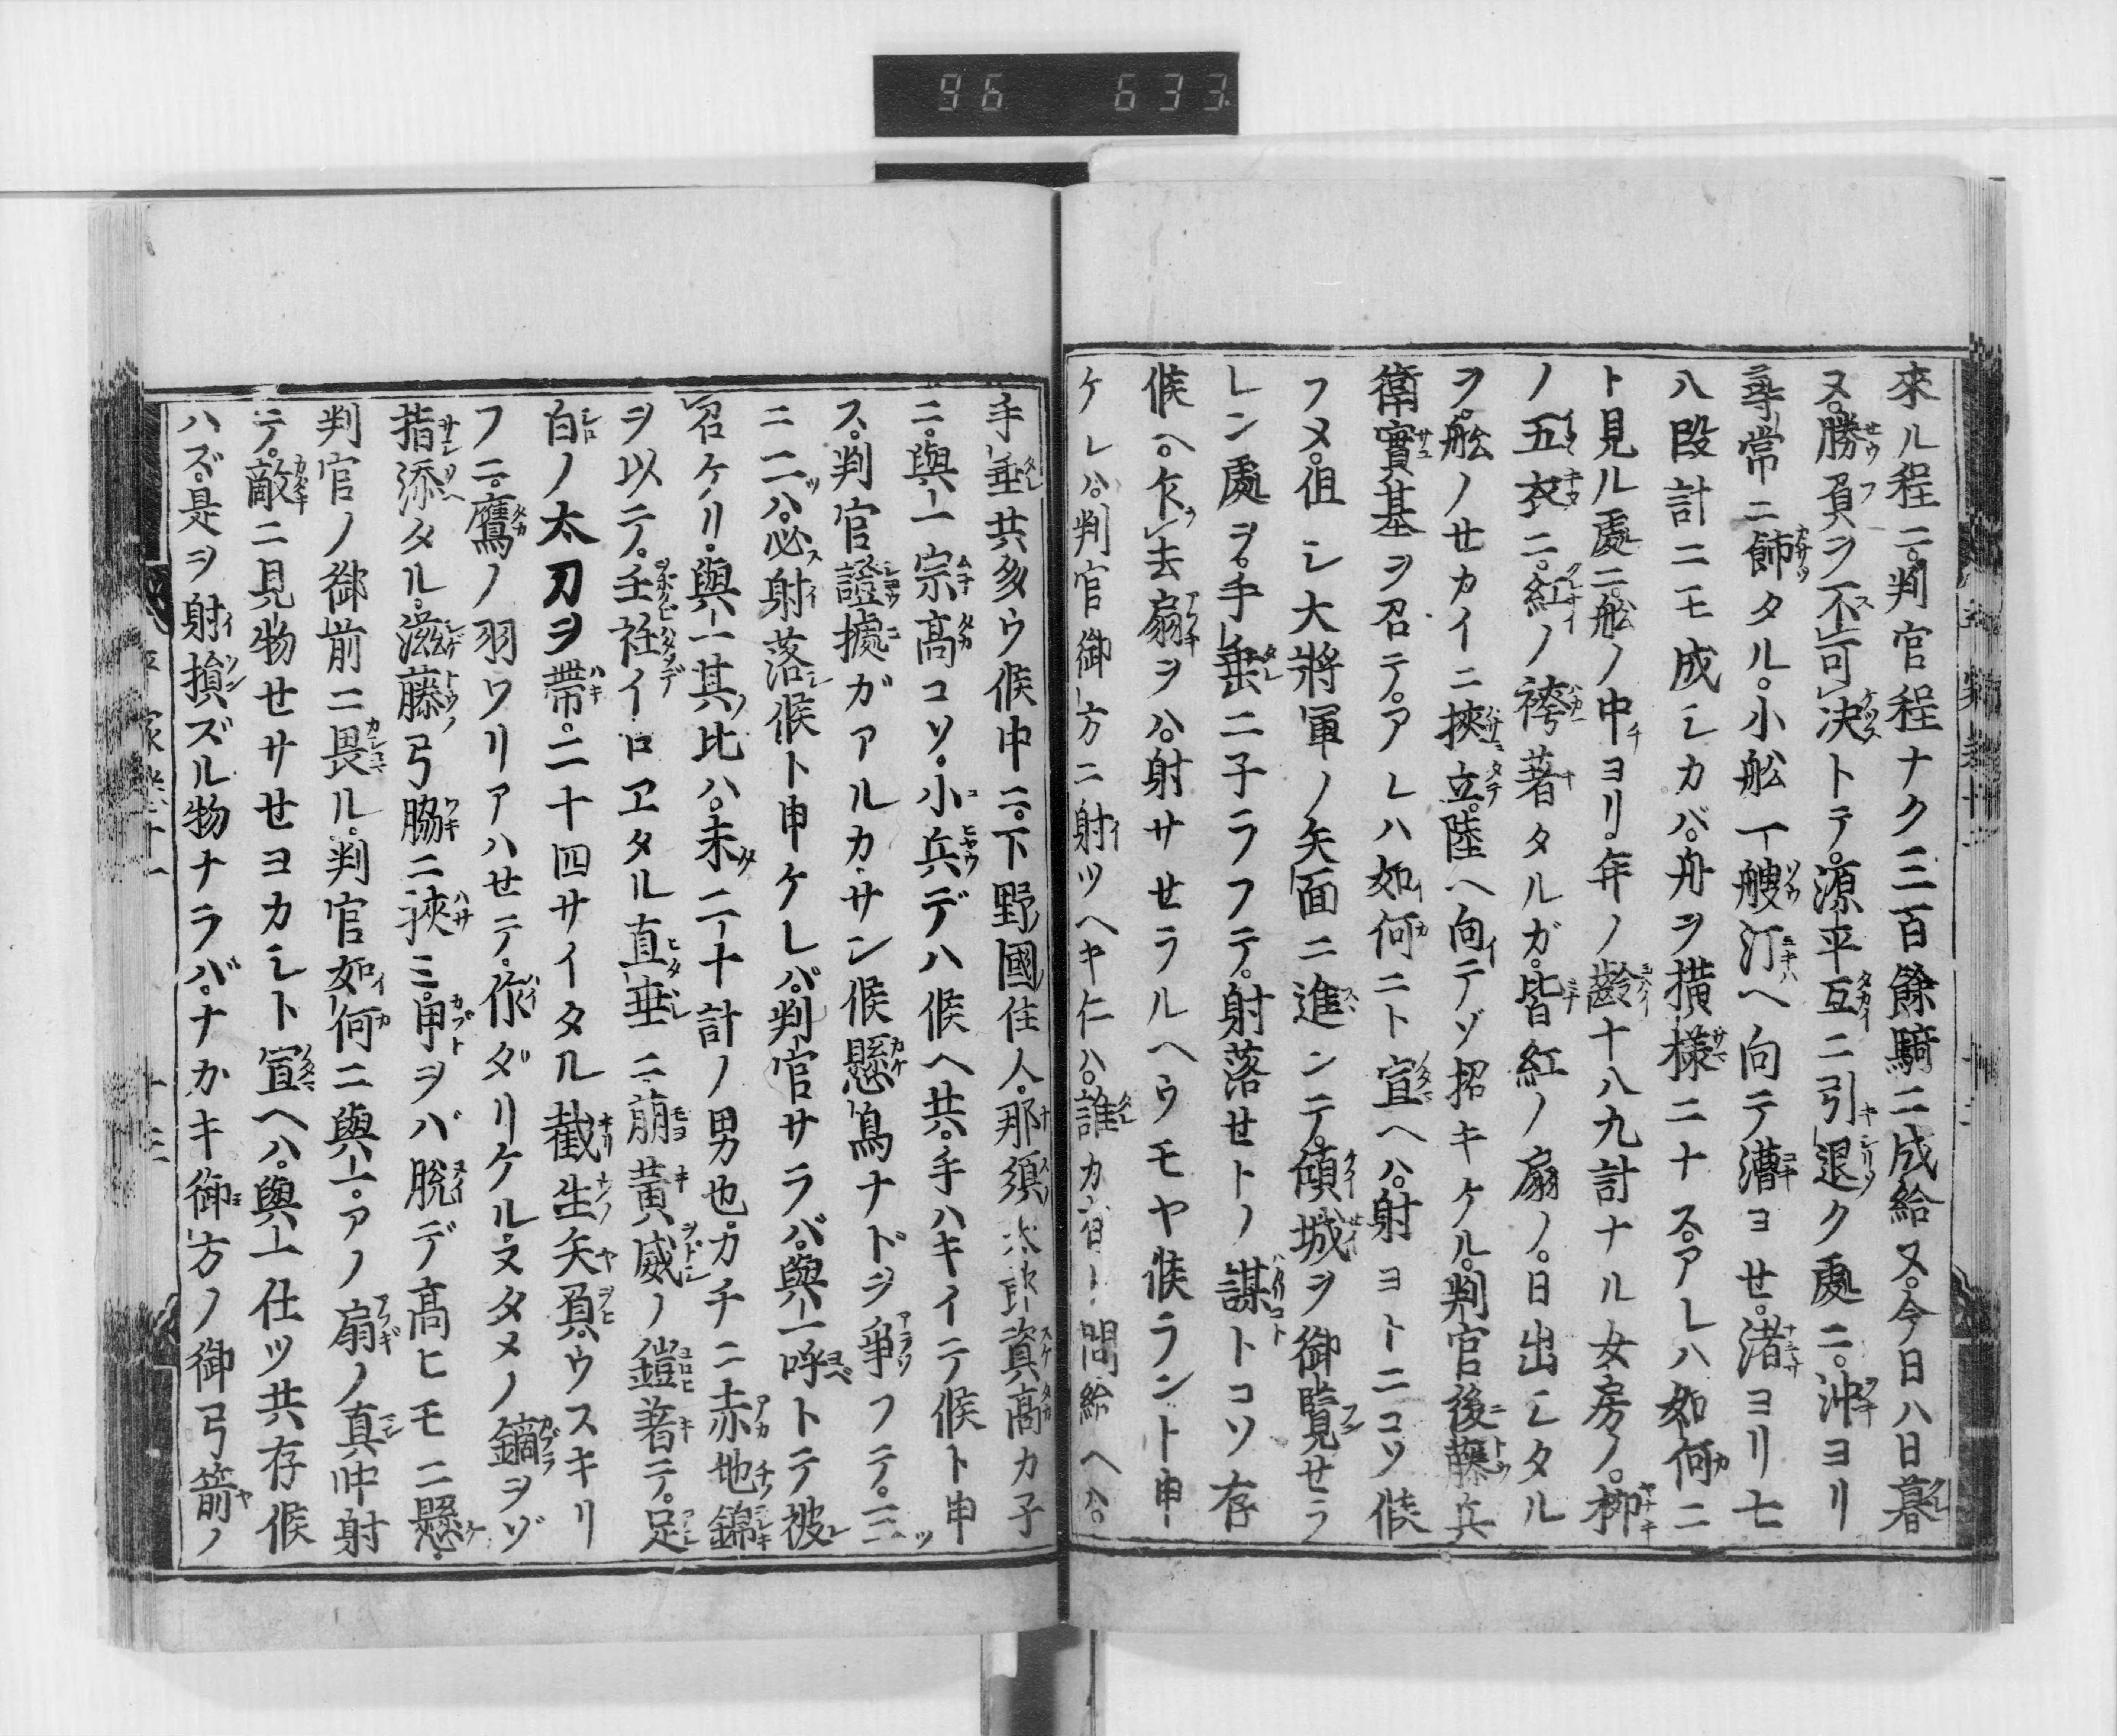 96 633
來ル程ニ。判官程ナク三百餘騎ニ成給ヌ。今日ハ日暮
ヌ。勝負ヲ不可决トテ。源平互ニ引退ク處ニ。沖ヨリ
尋常ニ餝タル。小舩一艘汀ヘ向テ漕ヨせ。渚ヨリ七
八段計ニモ成シカバ。舟ヲ横様ニナス。アレハ如何ニ
ト見ル處ニ。舩ノ中ヨリ。年ノ齡十八九計ナル女房ノ。栁
ノ五衣ニ。紅ノ袴著タルガ。皆紅ノ扇ノ。日出シタル
ヲ。舩ノせカイニ挾立。陸ヘ向テゾ招キケル。判官後藤兵
衛實基ヲ召テ。アレハ如何ニト宣ヘハ。射ヨトニコソ候
フメ。但シ大將軍ノ矢面ニ進ンデ。傾城ヲ御覧せラ
レン處ヲ。手垂ニ子ラフテ。射落せトノ謀トコソ存
候ヘ。乍去扇ヲハ。射サせラルヘウモヤ候ラント申
ケレハ。判官御方ニ射ツヘキ仁ハ。誰カ有ト問給ヘハ。
手垂共多ウ候中ニ。下野國住人。那須太郎資高カ子
ニ。與一宗高コソ。小兵デハ候ヘ共。手ハキイテ候ト申
ス。判官證據ガアルカ。サン候懸鳥ナドヲ爭フテ。三ツ
ニ二ハ。必射落候ト申ケレバ。判官サラバ。與一呼トテ被
召ケリ。與一其比ハ。未二十計ノ男也。カチニ赤地錦
ヲ以テ。壬衽イロヱタル直垂ニ。萠黄威ノ鎧著テ。足
白ノ太刀ヲ帶。二十四サイタル截生矢負。ウスキリ
フニ。鷹ノ羽ワリアハせテ。作ダリケル。ヌタメノ鏑ヲゾ
指添タル。滋藤弓脇ニ挾ミ。甲ヲバ脱デ高ヒモニ懸。
判官ノ御前ニ畏ル。判官如何ニ與一。アノ扇ノ真中射
テ。敵ニ見物せサせヨカシト宣ヘハ。與一仕ツ共存候
ハズ。是ヲ射損ズル物ナラバ。ナカキ御方ノ御弓箭ノ